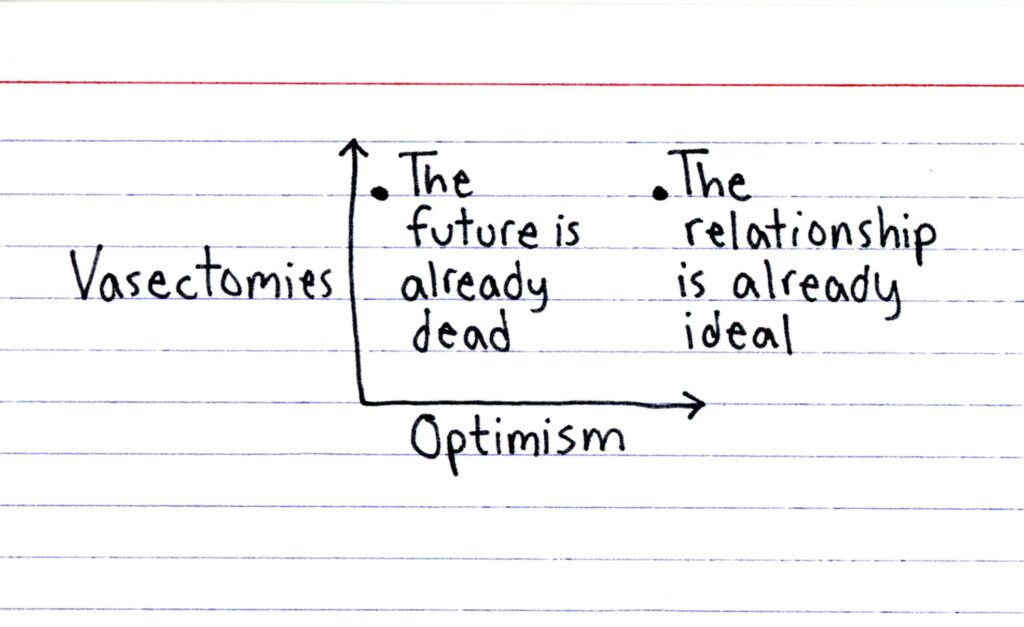 The
future is
already
dead
The
relationship
is already
ideal
Vasectomies
Optimism